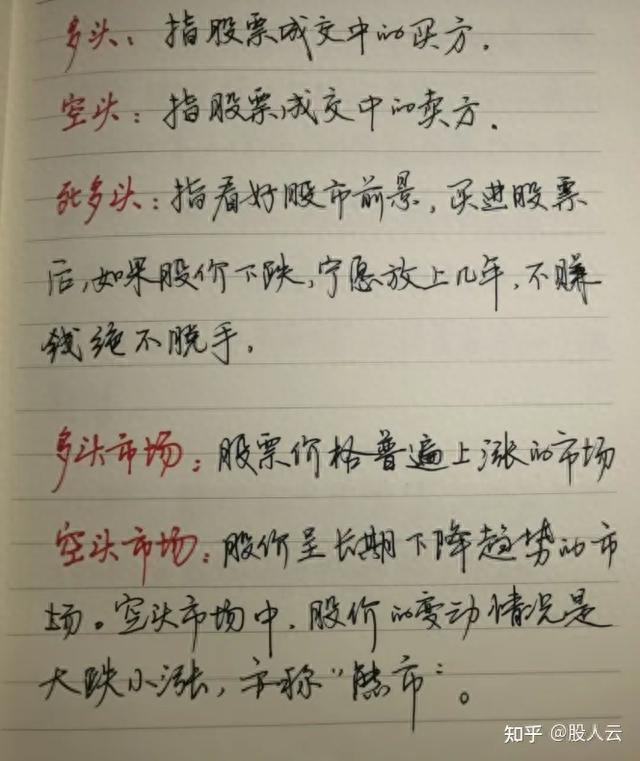 多头：指股票成交中的买方.
空头：指股票成交中的卖方.
死多头：指看好股市前景，买进股票
后,如果股价下跌,宁愿放上几年,不赚
钱绝不脱手.
多头市场：股票价格普遍上涨的市场
空头市场：股价呈长期下降趋势的市
场。空头市场中,股价的变动情况是
大跌小涨,亦称“熊市”。
知乎 @股人云